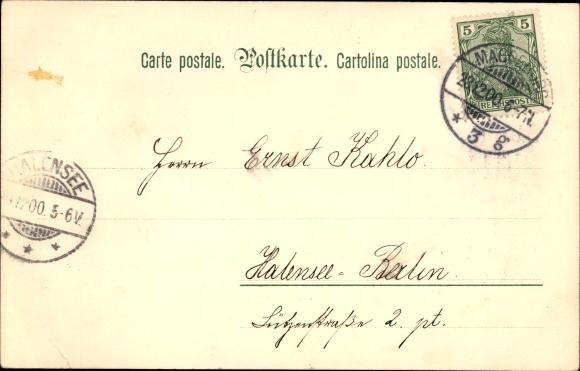 Carte postale. Postkarte. Cartolina postale.
5 5
REICHSPOST
12.00. 6-7N.
* 3 g
HALENSEE
12.00. 5-6V.
* * *
Herrn Ernst Kahlo.
Halensee-Berlin.
Lützenstraße 2. pt.